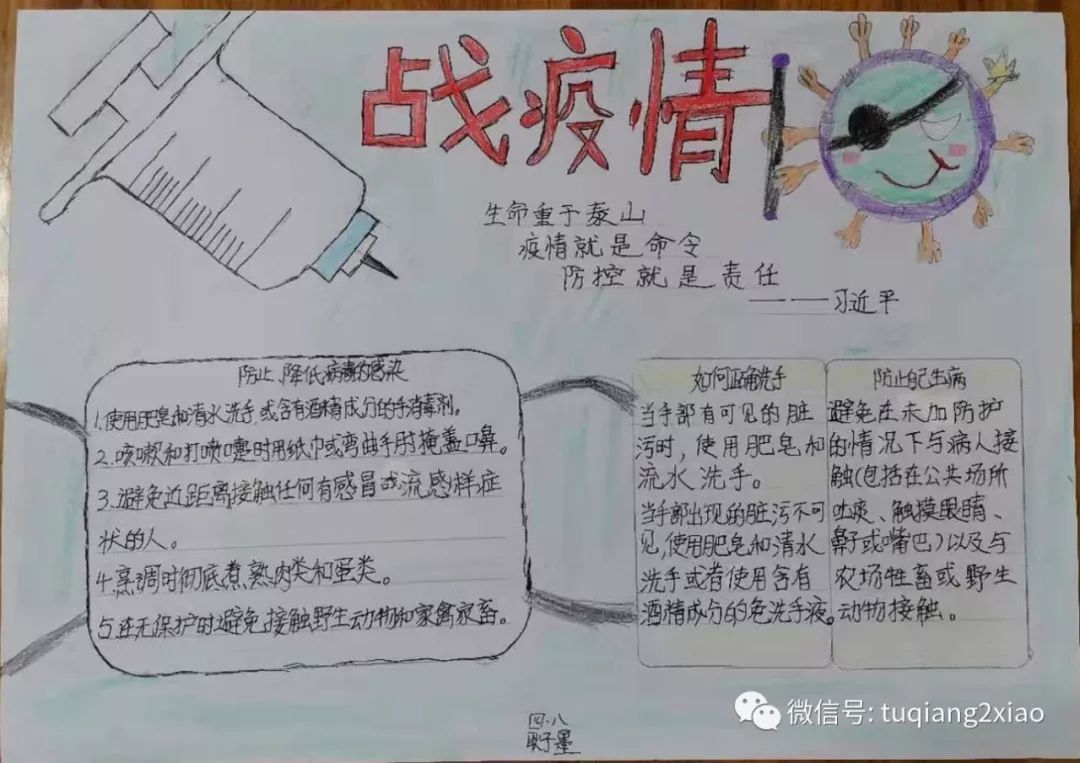 战疫情
生命重于泰山
疫情就是命令
防控就是责任
——习近平
防止、降低病毒的感染
1.使用肥皂和清水洗手,或含有酒精成分的手消毒剂。
2.咳嗽和打喷嚏时用纸巾或弯曲手肘掩盖口鼻。
3.避免近距离接触任何有感冒或流感样症
状的人。
4.烹调时彻底煮熟肉类和蛋类。
5.在无保护时避免接触野生动物和家禽家畜。
如何正确洗手
当手部有可见的脏
污时,使用肥皂和
流水洗手。
当手部出现的脏污不可
见,使用肥皂和清水
洗手或者使用含有
酒精成分的免洗手液。
防止自己生病
避免在未加防护
的情况下与病人接
触(包括在公共场所
吐痰、触摸眼睛、
鼻子或嘴巴)以及与
农场牲畜或野生
动物接触。
四·八
墨
微信号: tuqiang2xiao